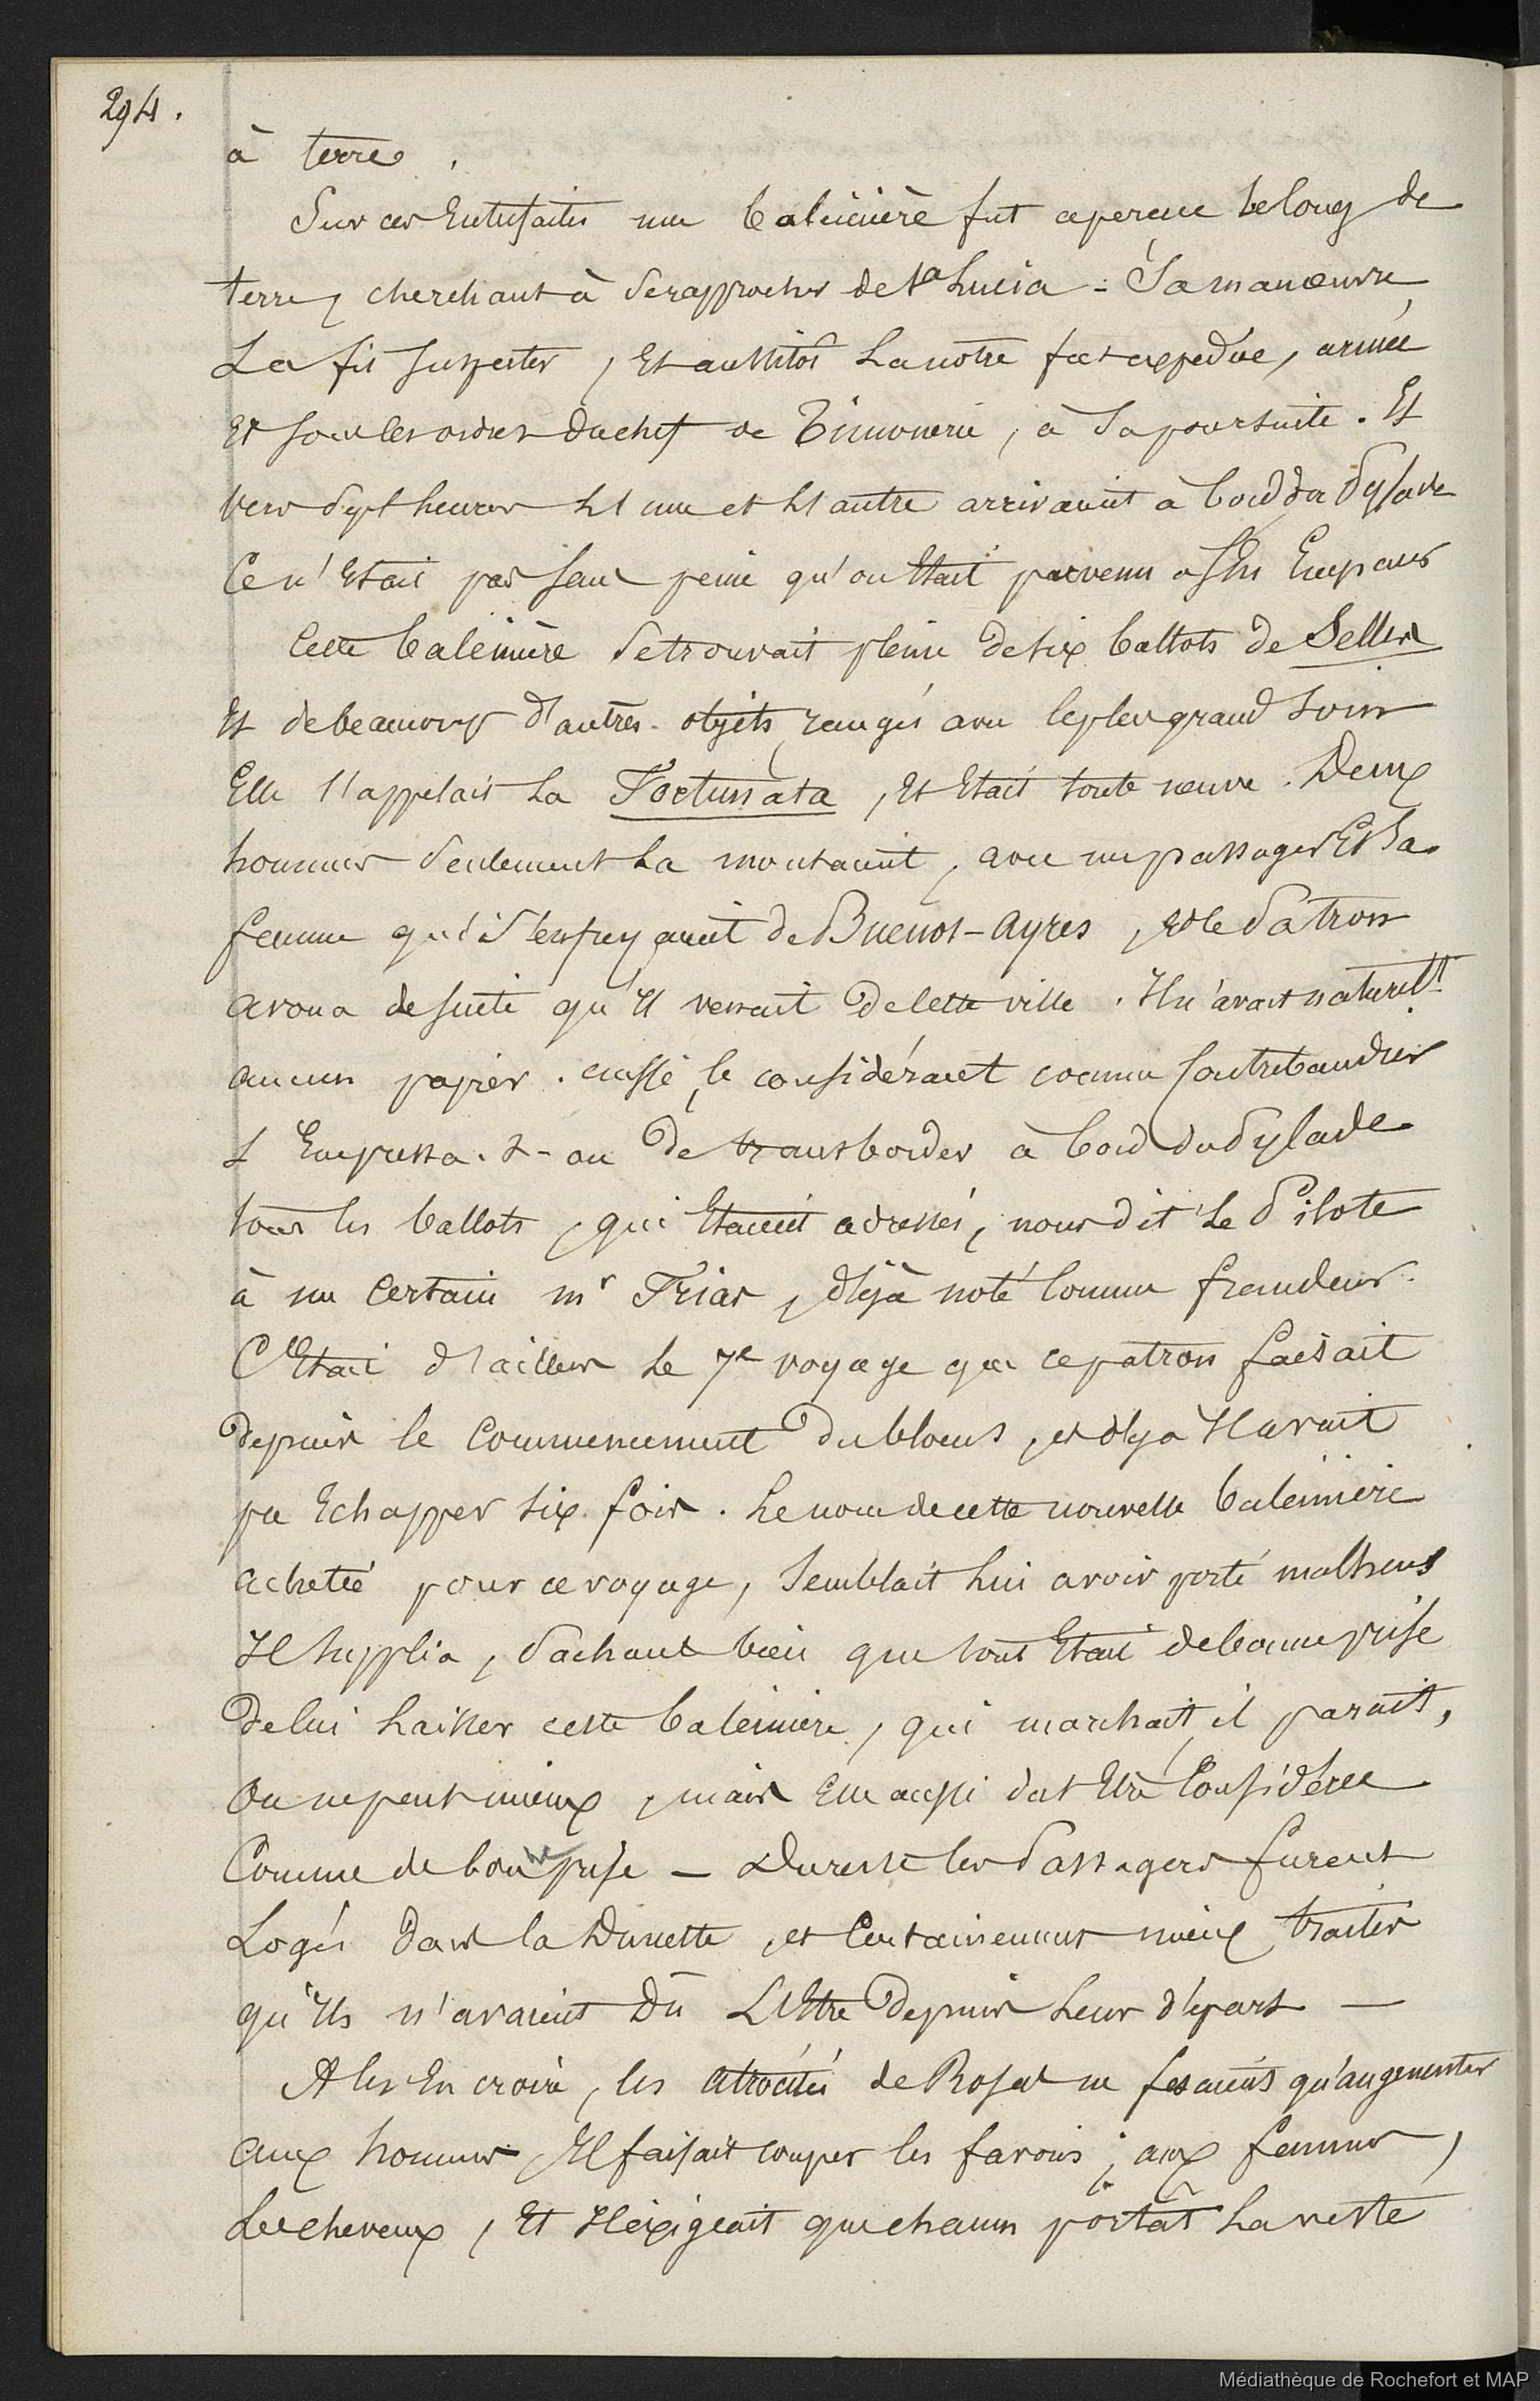 294.
à terre.
Sur ces entrefaites une baleinière fut aperçue le long de
terre, cherchant à se rapprocher de Sta Lucia - Sa manœuvre
La fit suspecter, Et aussitôt La notre fut expediée, armée
Et sous les ordres du chef de Timonerie, à Sa poursuite. Et
vers Sept heures L'une et L'autre arrivaient à bord du Pylade
Ce n'Etait pas sans peine qu'on Etait parvenu à s'En Emparer
Cette baleinière Se trouvait pleine de six ballots de Selles
Et de beaucoup d'autres objets rangés avec le plus grand soin
Elle s'appelait La Fortunata, Et Etait toute neuve. Deux
hommes Seulement La montaient, avec un passager Et Sa
femme qui S'enfuyaient de Buenos-Ayres, et le Patron
avoua de suite qu'Il venait de Cette ville. Il n'avait naturellt
aucun papier. aussi, le considérant comme Contrebandier
s'Empressa-t-on De transborder à bord du Pylade
tous les ballots, qui Etaient adressés, nous dit Le Pilote
à un Certain mr Frias, déjà noté Comme fraudeur.
C'Etait d'ailleurs Le 7e voyage que ce patron faisait
Depuis le Commencement Du blocus, et déjà Il avait
pu Echapper six fois. Le nom de cette nouvelle baleinière
achetée pour ce voyage, Semblait Lui avoir porté malheur
Il supplia, Sachant bien que tout Etait de bonne prise
De lui Laisser cette baleinière, qui marchait, il parait,
On ne peut mieux, mais Elle aussi dut Etre Considérée
Comme de bonne prise - Du reste les Passagers furent
Logés Dans la Dunette, et Certainement mieux traités
qu'Ils n'avaient Dû L'Etre Depuis Leur départ —
A les En croire, les atrocités de Rosas ne fesaient qu'augmenter
aux hommes Il faisait couper les favoris ; aux femmes,
Les cheveux, Et Il exigeait que chacun portât La veste
Médiathèque de Rochefort et MAP